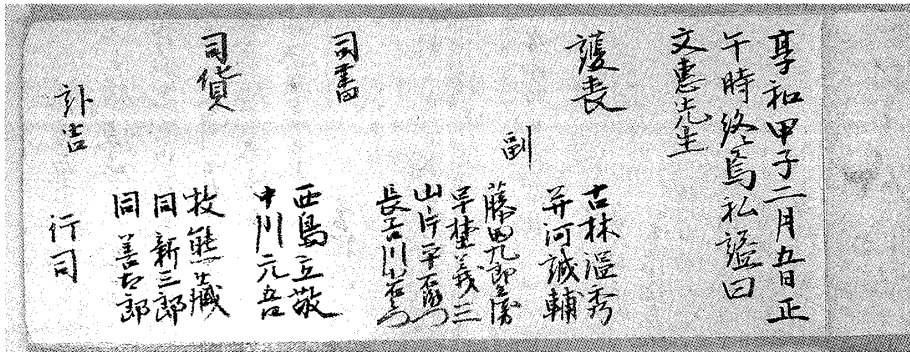 享和甲子二月五日正
午時終焉私諡曰
文惠先生
護喪
古林溫秀
并河誠輔
副
藤田九郎兵衛
早埜義三
山片平右衛門
長谷川右衛門
司書
西島立敬
中川元吾
司貨
牧熊藏
同新三郎
同善太郎
訃告
行司